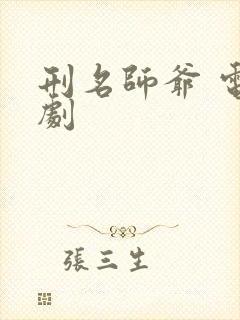 刑名師爺 電
劇
張三生